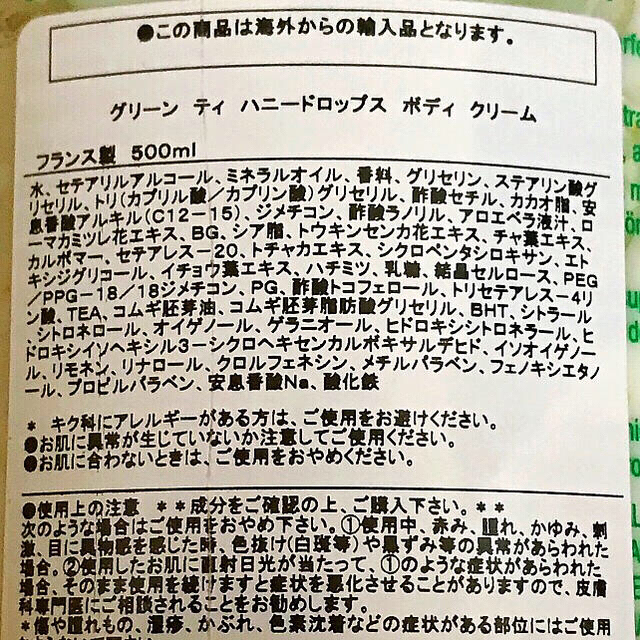 ●この商品は海外からの輸入品となります。
グリーン ティ ハニードロップス ボディ クリーム
フランス製 500ml
水、セテアリルアルコール、ミネラルオイル、香料、グリセリン、ステアリン酸グ
リセリル、トリ(カプリル酸／カプリン酸)グリセリル、酢酸セチル、カカオ脂、安
息香酸アルキル(C12－15)、ジメチコン、酢酸ラノリル、アロエベラ液汁、ロ
ーマカミツレ花エキス、BG、シア脂、トウキンセンカ花エキス、チャ葉エキス、
カルボマー、セテアレス－20、トチャカエキス、シクロペンタシロキサン、エト
キシジグリコール、イチョウ葉エキス、ハチミツ、乳糖、結晶セルロース、PEG
／PPG－18／18ジメチコン、PG、酢酸トコフェロール、トリセテアレス－4リ
ン酸、TEA、コムギ胚芽油、コムギ胚芽脂肪酸グリセリル、BHT、シトラール
、シトロネロール、オイゲノール、ゲラニオール、ヒドロキシシトロネラール、ヒ
ドロキシイソヘキシル3－シクロヘキセンカルボキサルデヒド、イソオイゲノー
ル、リモネン、リナロール、クロルフェネシン、メチルパラベン、フェノキシエタノ
ール、プロピルパラベン、安息香酸Na、酸化鉄
＊ キク科にアレルギーがある方は、ご使用をお避けください。
●お肌に異常が生じていないか注意してご使用ください。
●お肌に合わないときは、ご使用をおやめください。
●使用上の注意 ＊＊成分をご確認の上、ご購入下さい。＊＊
次のような場合はご使用をおやめ下さい。①使用中、赤み、腫れ、かゆみ、刺
激、目に異物感を感じた時、色抜け(白斑等)や黒ずみ等の異常があらわれた
場合、②使用したお肌に直射日光が当たって、①のような症状があらわれた
場合、そのまま使用を続けますと症状を悪化させることがありますので、皮膚
科専門医にご相談されることをお勧めします。
＊傷や腫れもの、湿疹、かぶれ、色素沈着などの症状がある部位にはご使用